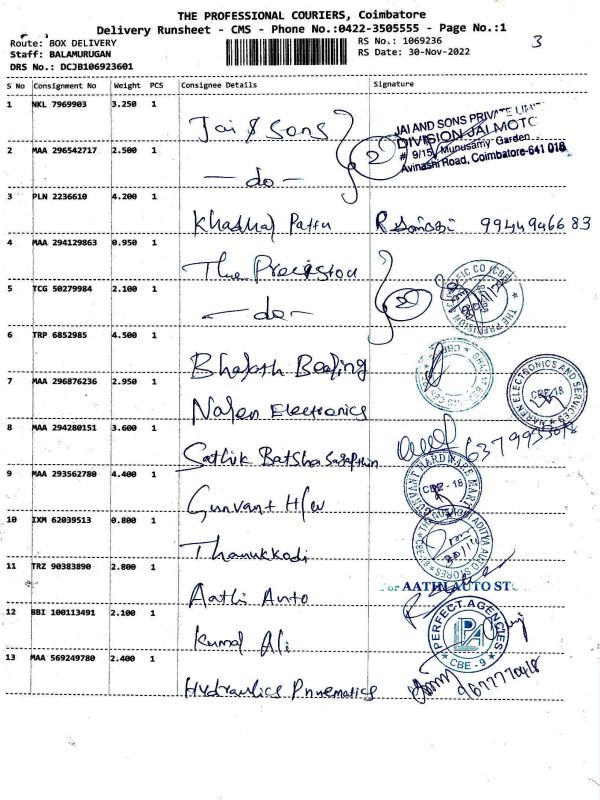 THE PROFESSIONAL COURIERS, Coimbatore
Delivery Runsheet - CMS - Phone No.:0422-3505555 - Page No.:1
Route: BOX DELIVERY
Staff: BALAMURUGAN
DRS No.: DCJB106923601
RS No.: 1069236
RS Date: 30-Nov-2022
3
S No Consignment No Weight PCS Consignee Details Signature
1 NKL 7969903 3.250 1 Jai & Sons
JAI AND SONS PRIVATE LIMIT
DIVISION JAI MOTO
# 9/15, Munusamy Garden
Avinashi Road, Coimbatore-641 018
2
2 MAA 296542717 2.500 1 - do -
3 PLN 2236610 4.200 1 Khadhal Pattu 9944946683
4 MAA 294129863 0.950 1 The Precision
5 TCG 50279984 2.100 1 - do -
THE PRECISION
6 TRP 6852985 4.500 1 Bharath Bearing
7 MAA 296876236 2.950 1 Naren Electronics
NAREN ELECTRONICS AND SERVICES
CBE-18
8 MAA 294280151 3.600 1 Sathik Batsha
9 MAA 293562780 4.400 1 Gunvant H/w
GUNVANT HARDWARE MART
CBE - 18
10 IXM 62039513 0.800 1 Thanukkodi
ADITYA AUTO STORES
11 TRZ 90383890 2.800 1 Aathi Auto
For AATHI AUTO ST
12 BBI 100113491 2.100 1 Kumal Ali
PERFECT AGENCIES
PA
CBE - 9
13 MAA 569249780 2.400 1 Hydraulics Pnuematics
9677770418